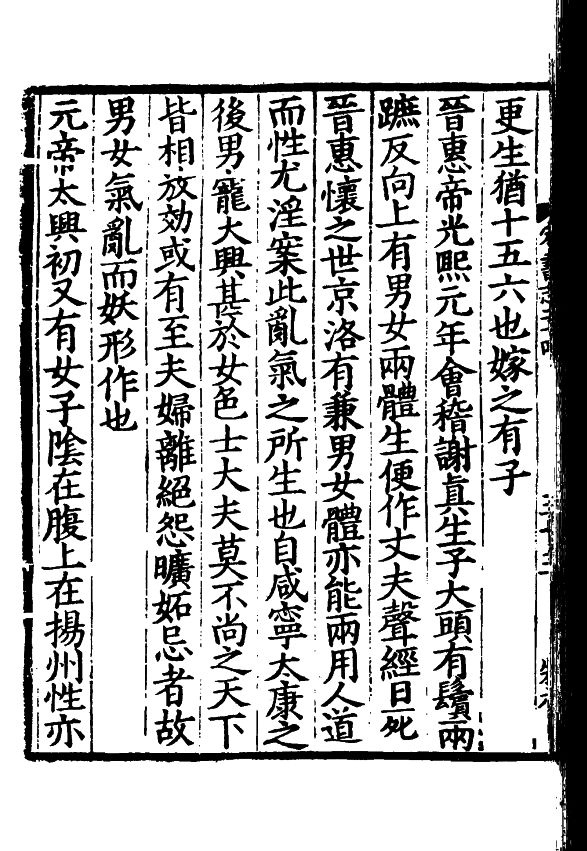 更生猶十五六也嫁之有子
晉惠帝光熙元年會稽謝真生子大頭有鬚兩
蹠反向上有男女兩體生便作丈夫聲經日死
晉惠懷之世京洛有兼男女體亦能兩用人道
而性尤淫案此亂氣之所生也自咸寧太康之
後男寵大興甚於女色士大夫莫不尚之天下
皆相放効或有至夫婦離絕怨曠妬忌者故
男女氣亂而妖形作也
元帝太興初又有女子陰在腹上在揚州性亦